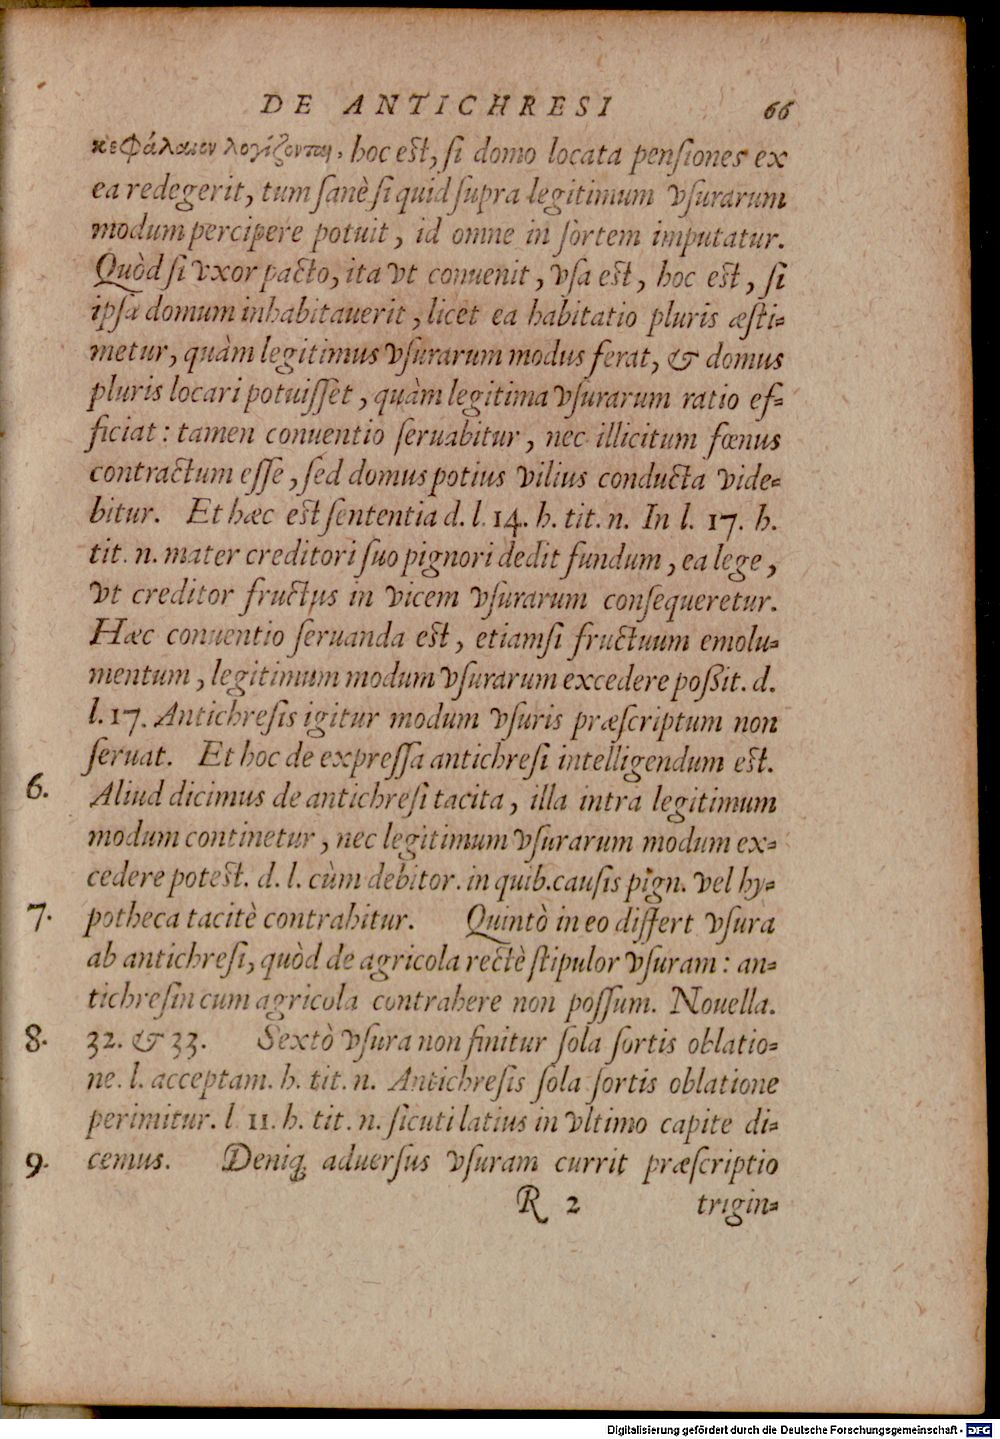 DE ANTICHRESI 66
κεφάλαιον λογίζονται, hoc est, si domo locata pensiones ex
ea redegerit, tum sanè si quid supra legitimum vsurarum
modum percipere potuit, id omne in sortem imputatur.
Quòd si vxor pacto, ita vt conuenit, vsa est, hoc est, si
ipsa domum inhabitauerit, licet ea habitatio pluris æsti-
metur, quàm legitimus vsurarum modus ferat, & domus
pluris locari potuisset, quàm legitima vsurarum ratio ef-
ficiat: tamen conuentio seruabitur, nec illicitum fœnus
contractum esse, sed domus potius vilius conducta vide-
bitur. Et hæc est sententia d. l. 14. h. tit. n. In l. 17. h.
tit. n. mater creditori suo pignori dedit fundum, ea lege,
vt creditor fructus in vicem vsurarum consequeretur.
Hæc conuentio seruanda est, etiamsi fructuum emolu-
mentum, legitimum modum vsurarum excedere possit. d.
l. 17. Antichresis igitur modum vsuris præscriptum non
seruat. Et hoc de expressa antichresi intelligendum est.
6. Aliud dicimus de antichresi tacita, illa intra legitimum
modum continetur, nec legitimum vsurarum modum ex-
cedere potest. d. l. cùm debitor. in quib. causis pign. vel hy-
7. potheca tacitè contrahitur. Quintò in eo differt vsura
ab antichresi, quòd de agricola rectè stipulor vsuram: an-
tichresin cum agricola contrahere non possum. Nouella.
8. 32. & 33. Sextò vsura non finitur sola sortis oblatio-
ne. l. acceptam. h. tit. n. Antichresis sola sortis oblatione
perimitur. l 11. h. tit. n. sicuti latius in vltimo capite di-
9. cemus. Deniq; aduersus vsuram currit præscriptio
R 2 trigin-
Digitalisierung gefördert durch die Deutsche Forschungsgemeinschaft - DFG